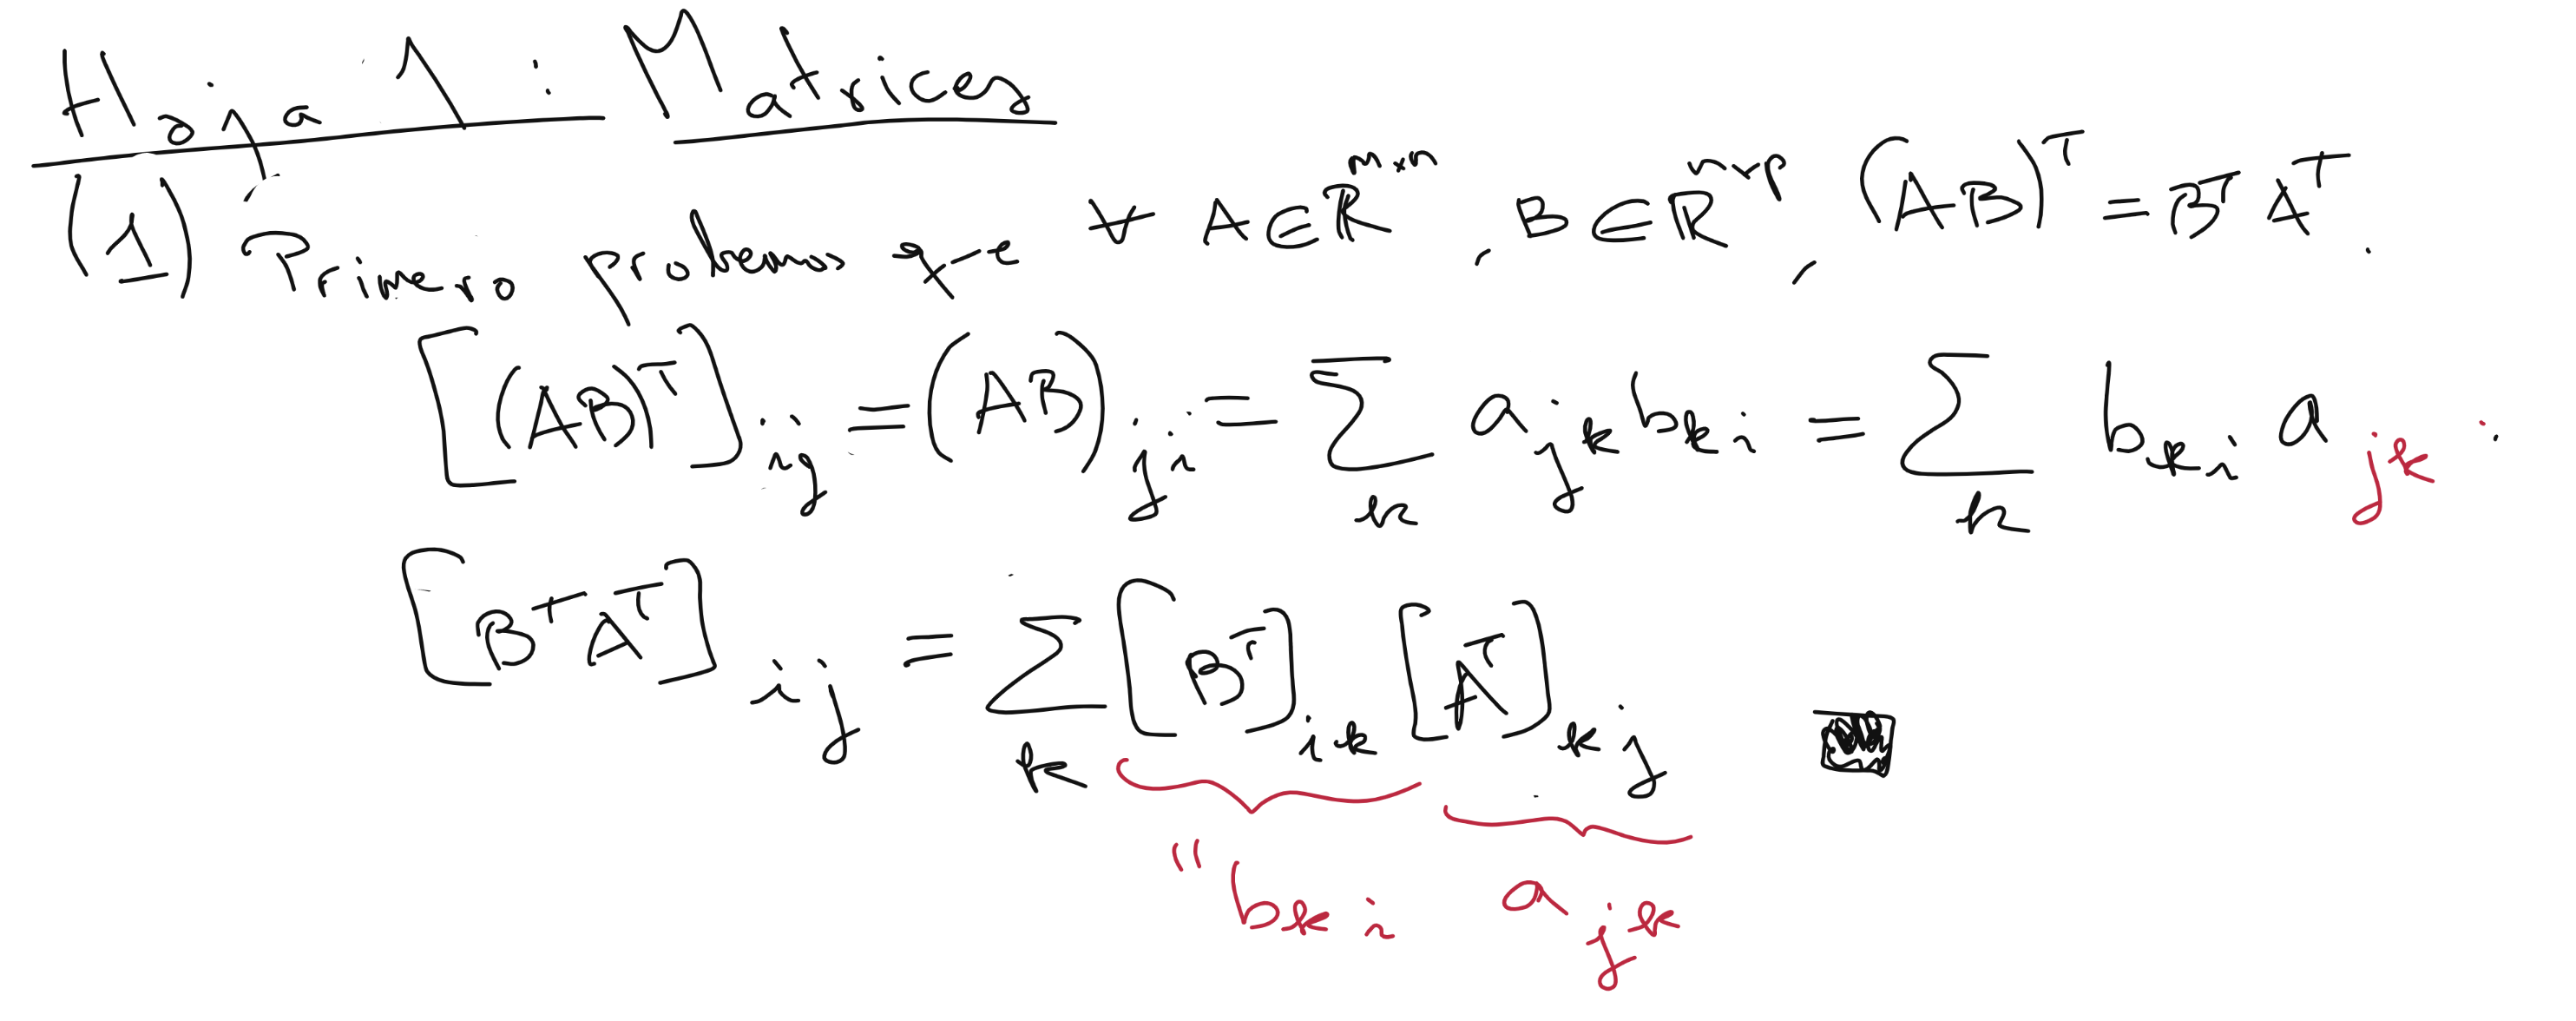 Hoja 1 : Matrices
(1) Primero probemos que ∀ A ∈ ℝ^{m×n}, B ∈ ℝ^{n×p}, (AB)^T = B^T A^T.
[(AB)^T]_{ij} = (AB)_{ji} = ∑_k a_{jk} b_{ki} = ∑_k b_{ki} a_{jk}.
[B^T A^T]_{ij} = ∑_k [B^T]_{ik} [A^T]_{kj} ■
" b_{ki} a_{jk}